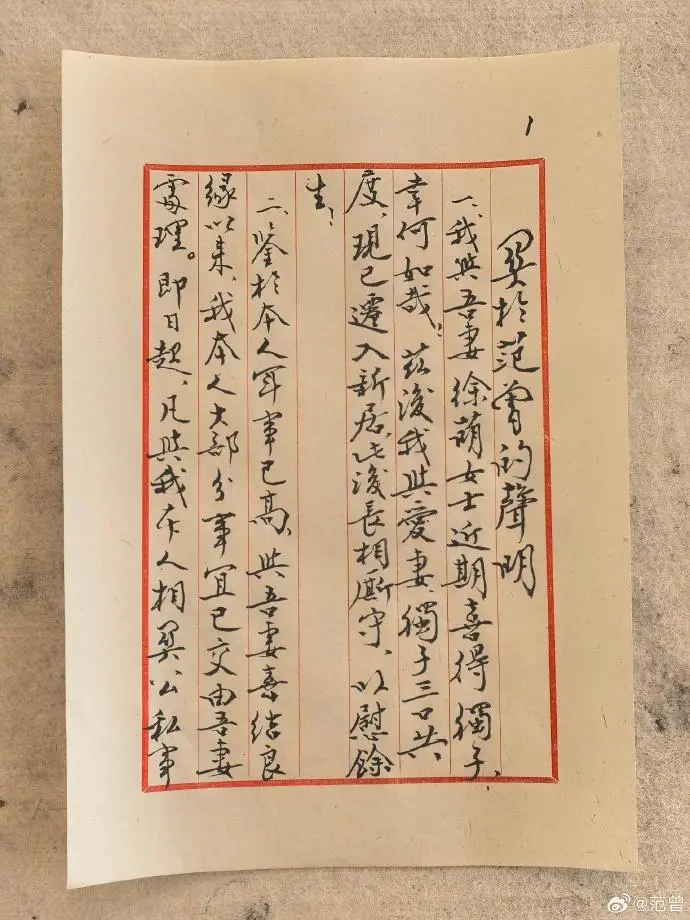 1
關於范曾的聲明
一、我與吾妻徐萌女士近期喜得獨子，
幸何如哉。茲後我與愛妻、獨子三口共
度，現已遷入新居，此後長相廝守，以慰餘
生；
二、鑒於本人年事已高，與吾妻喜結良
緣以來，我本人大部分事宜已交由吾妻
處理。即日起，凡與我本人相關公私事
@范曾